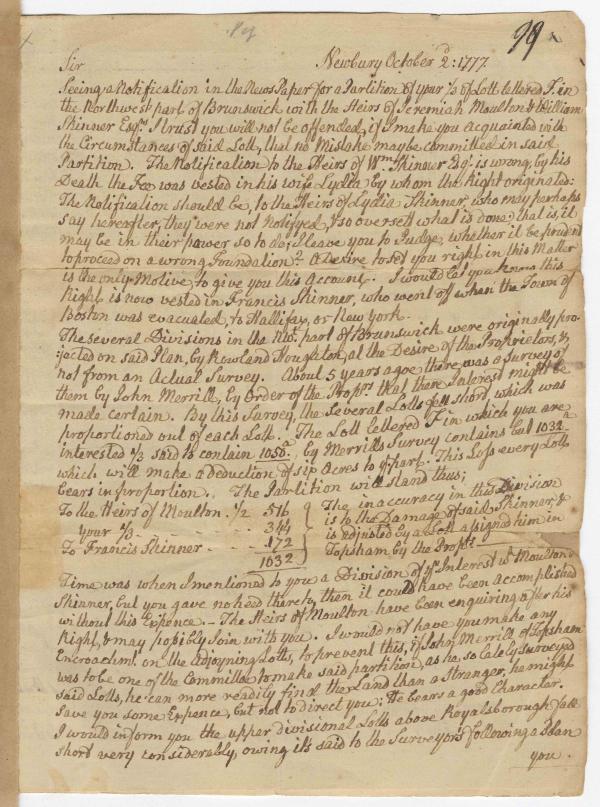 99
Sir Newbury October 2d: 1777.
Seeing a Notification in the News Paper for a Partition of your 1/3 of Lott lettered F. in
the Northwest part of Brunswick with the Heirs of Jeremiah Moulton & William
Skinner Esqrs I trust you will not be offended, if I make you acquainted with
the Circumstances of said Lott, that no Mistake may be committed in said
Partition. The Notification to the Heirs of Wm. Skinner Esq. is wrong, by his
Death the Fee was vested in his wife Lydia, by whom the Right originated:
The Notification should be, to the Heirs of Lydia Skinner, who may perhaps
say hereafter, they were not Notifyed, & so oversett what is done; that is, it
may be in their power so to do; I leave you to Judge, whether it be prudent
to proceed on a wrong Foundation? A Desire to sed you right in this Matter
is the only Motive, to give you this Account. I would let you know this
Right is now vested in Francis Skinner, who went off when the Town of
Boston was evacuated, to Hallifax, or New York.
The several Divisions in the NW. part of Brunswick were originally pro-
jected on said Plan, by Rowland Houghton, at the Desire of the Proprietors, &
not from an Actual Survey. About 5 years agoe there was a Survey of
them by John Merrill, by Order of the Proprs. that their Interest might be
made certain. By this Survey, the several Lotts fell short, which was
proportioned out of each Lott. The Lott lettered F in which you are
interested 1/3 said to contain 1050a, by Merrills Survey contains but 1032a
which will make a Deduction of six Acres to yr. part. This Loss every Lott
bears in proportion. The Partition will stand thus;
To the Heirs of Moulton. 1/2 516
your 1/3 344
To Francis Skinner 172
1032
The inaccuracy in this Division
is to the Damage of said Skinner, &
is adjusted by a Lott assigned him in
Topsham by the Proprs.
Time was when I mentioned to you a Division of yr. Interest wt. Moulton &
Skinner, but you gave no heed thereto, then it could have been accomplished
without this Expence. The Heirs of Moulton have been enquiring after his
Right, & may possibly Join with you. I would not have you make any
Encroachmt. on the adjoyning Lotts, to prevent this, if John Merrill of Topsham
was to be one of the Committee to make said partition, as he, so lately surveyed
said Lotts, he can more readily find the Land than a Stranger, he might
save you some Expence, but not to direct you; He bears a good Character.
I would inform you the upper divisional Lotts above Royalsborough fall
short very considerably, owing it's said to the Surveyors following a Plan
you.